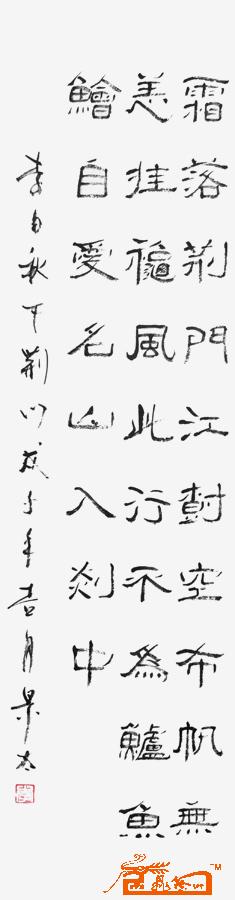 霜落荆門江樹空布帆無
恙挂龝風此行不為鱸魚
鱠自愛名山入剡中
李白秋下荆门戊子年吉月